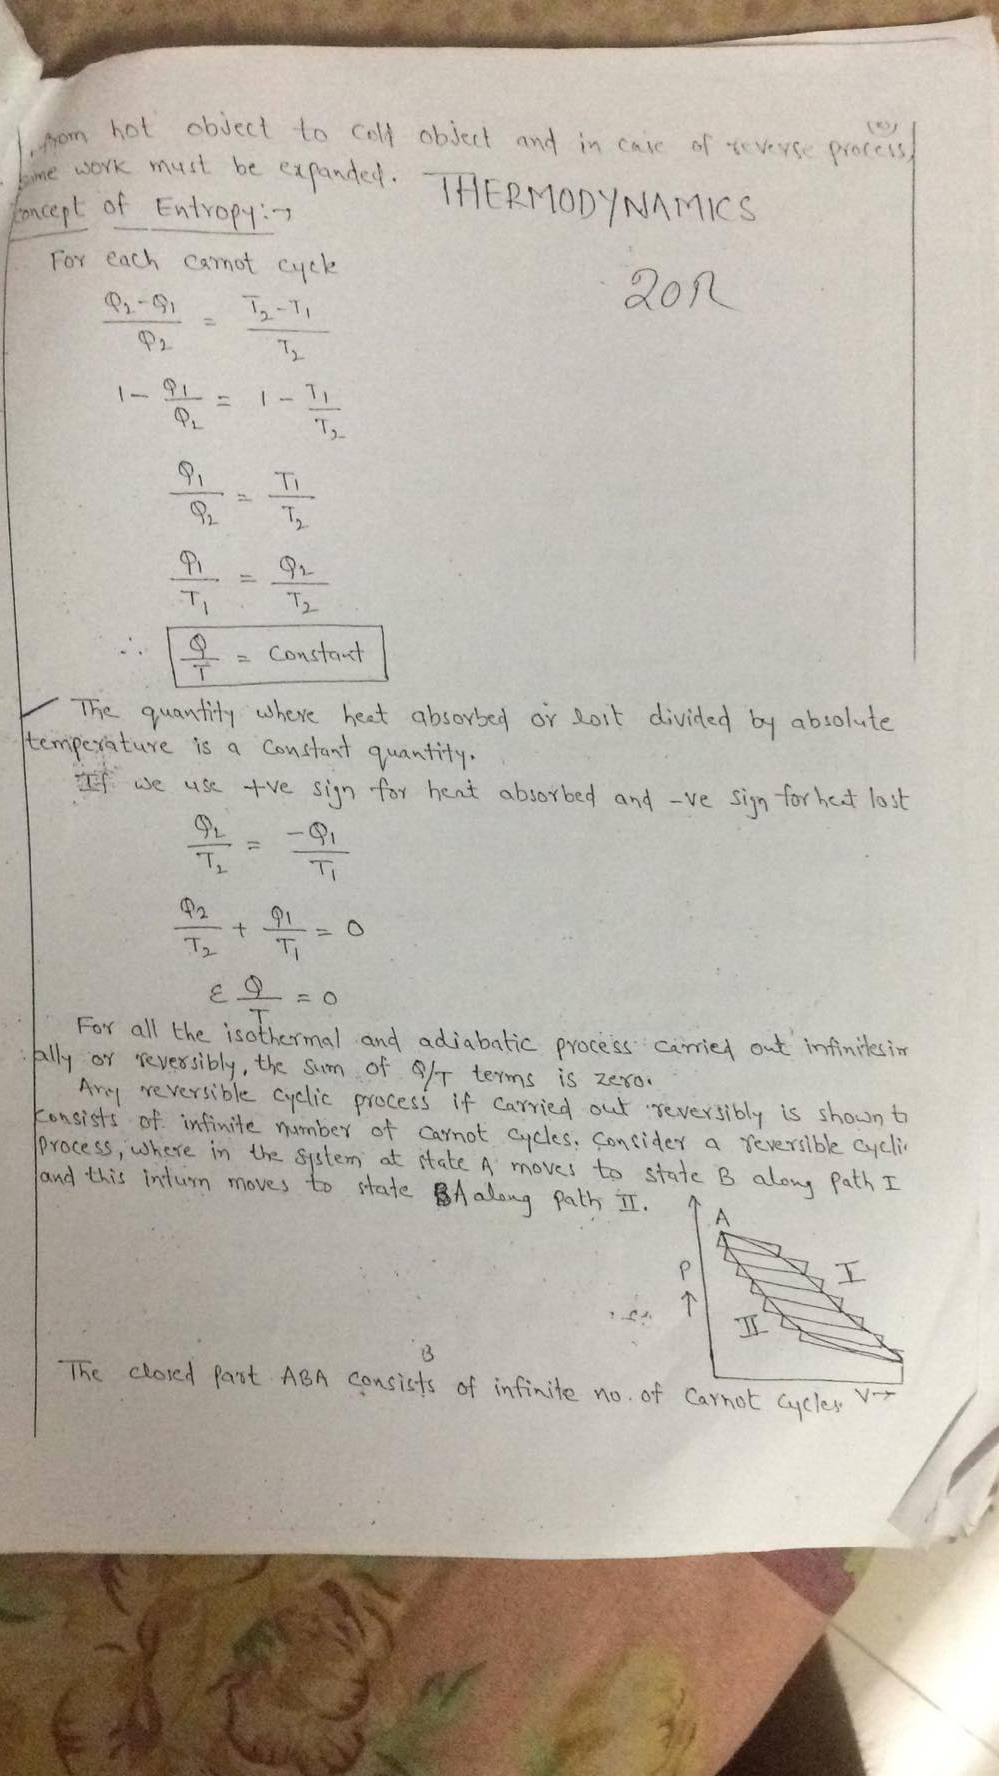 from hot object to cold object and in case of reverse process,
some work must be expanded.
THERMODYNAMICS
Concept of Entropy:→
For each carnot cycle
20R
Q2-Q1/Q2 = T2-T1/T2
1- Q1/Q2 = 1- T1/T2
Q1/Q2 = T1/T2
Q1/T1 = Q2/T2
∴ Q/T = Constant
The quantity where heat absorbed or lost divided by absolute
temperature is a constant quantity.
If we use +ve sign for heat absorbed and -ve sign for heat lost
Q2/T2 = -Q1/T1
Q2/T2 + Q1/T1 = 0
Ɛ Q/T = 0
For all the isothermal and adiabatic process carried out infinitesim
ally or reversibly, the sum of Q/T terms is zero.
Any reversible cyclic process if carried out reversibly is shown to
consists of infinite number of carnot cycles. Consider a reversible cycli
process, where in the system at state A moves to state B along path I
and this inturn moves to state A along path II.
A
P
↑
I
II
B
The closed part ABA consists of infinite no. of Carnot cycles
V→